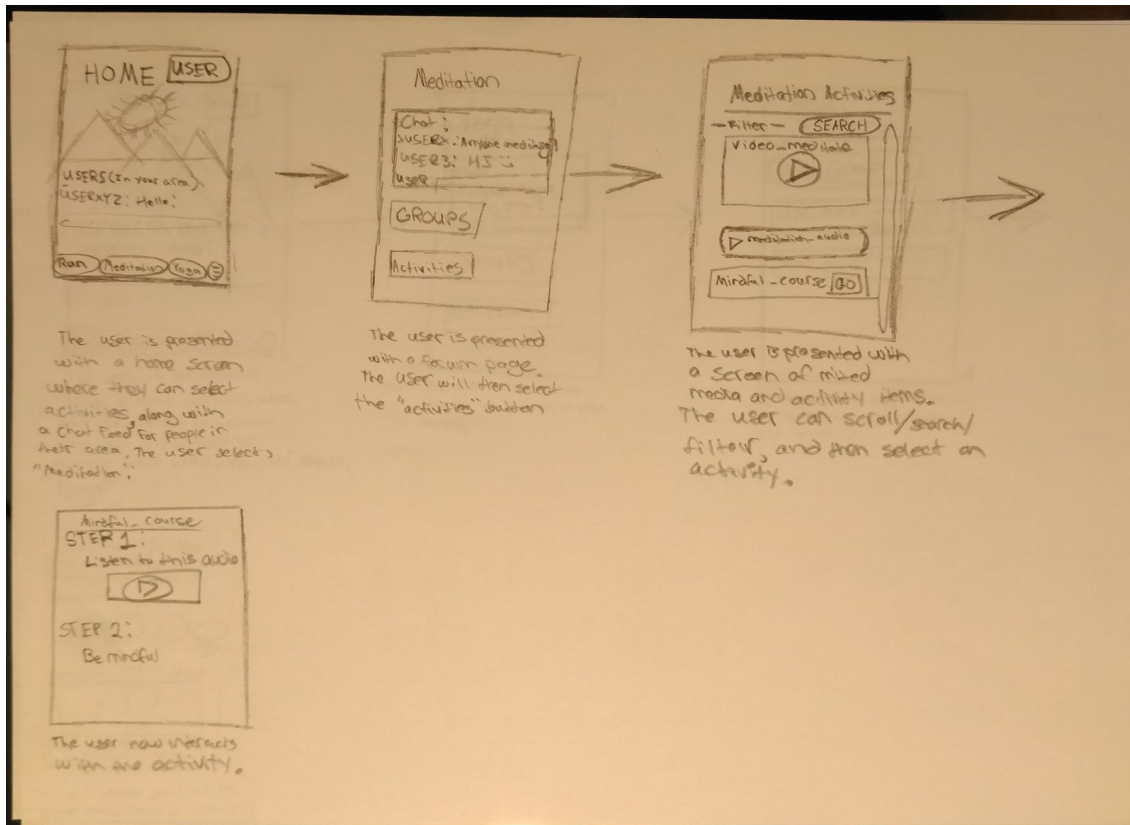 HOME USER
USERS (In your area)
USERXYZ: Hello!
Run Meditation Yoga
The user is presented
with a home screen
where they can select
activities, along with
a chat feed for people in
their area. The user selects
"Meditation".
Meditation
Chat:
>USERX: Anyone
USER3: HI :)
USER
GROUPS
Activities
The user is presented
with a forum page.
The user will then select
the "activities" button
Meditation Activities
-Filter- SEARCH
video_meditate
meditation_audio
Mindful_course GO
The user is presented with
a screen of mixed
media and activity items.
The user can scroll/search/
filter, and then select an
activity.
Mindful_course
STEP 1:
Listen to this audio
STEP 2:
Be mindful
The user now interacts
with the activity.